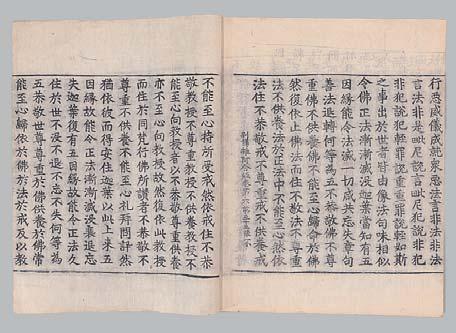 行惡威儀成就衆惡法言非法非法
言法非是毗尼說言毗尼犯說非犯
非犯說犯輕罪說重重罪說輕如斯
之事出於世者皆由像法句味相似
令佛正法漸漸滅没迦葉當知有五
因緣能令法滅一切咸共忘失章句
善法退轉何等為五不恭敬佛不尊
重佛不供養佛不能至心歸命於佛
然復依止佛法而住不敬法不尊重
法不供養法於正法中不能至心然依
法住不恭敬戒不尊重戒不供養戒
不能至心持所受戒然依戒住不恭
敬教授不尊重教授不供養教授不
能至心向教授者以不恭敬尊重供養
亦不至心向教授故然復依此教授
而住於同梵行佛所讚者不恭敬不
尊重不供養不能至心禮拜問訊然
猶依彼而得安住迦葉以此上來五
因緣故能令正法漸漸滅没褁退忘
失迦葉復有五因緣故能令正法久
住於世不没不退不忘不失何等為
五恭敬世尊尊重於佛供養於佛常
能至心歸依於佛於法於戒及以教